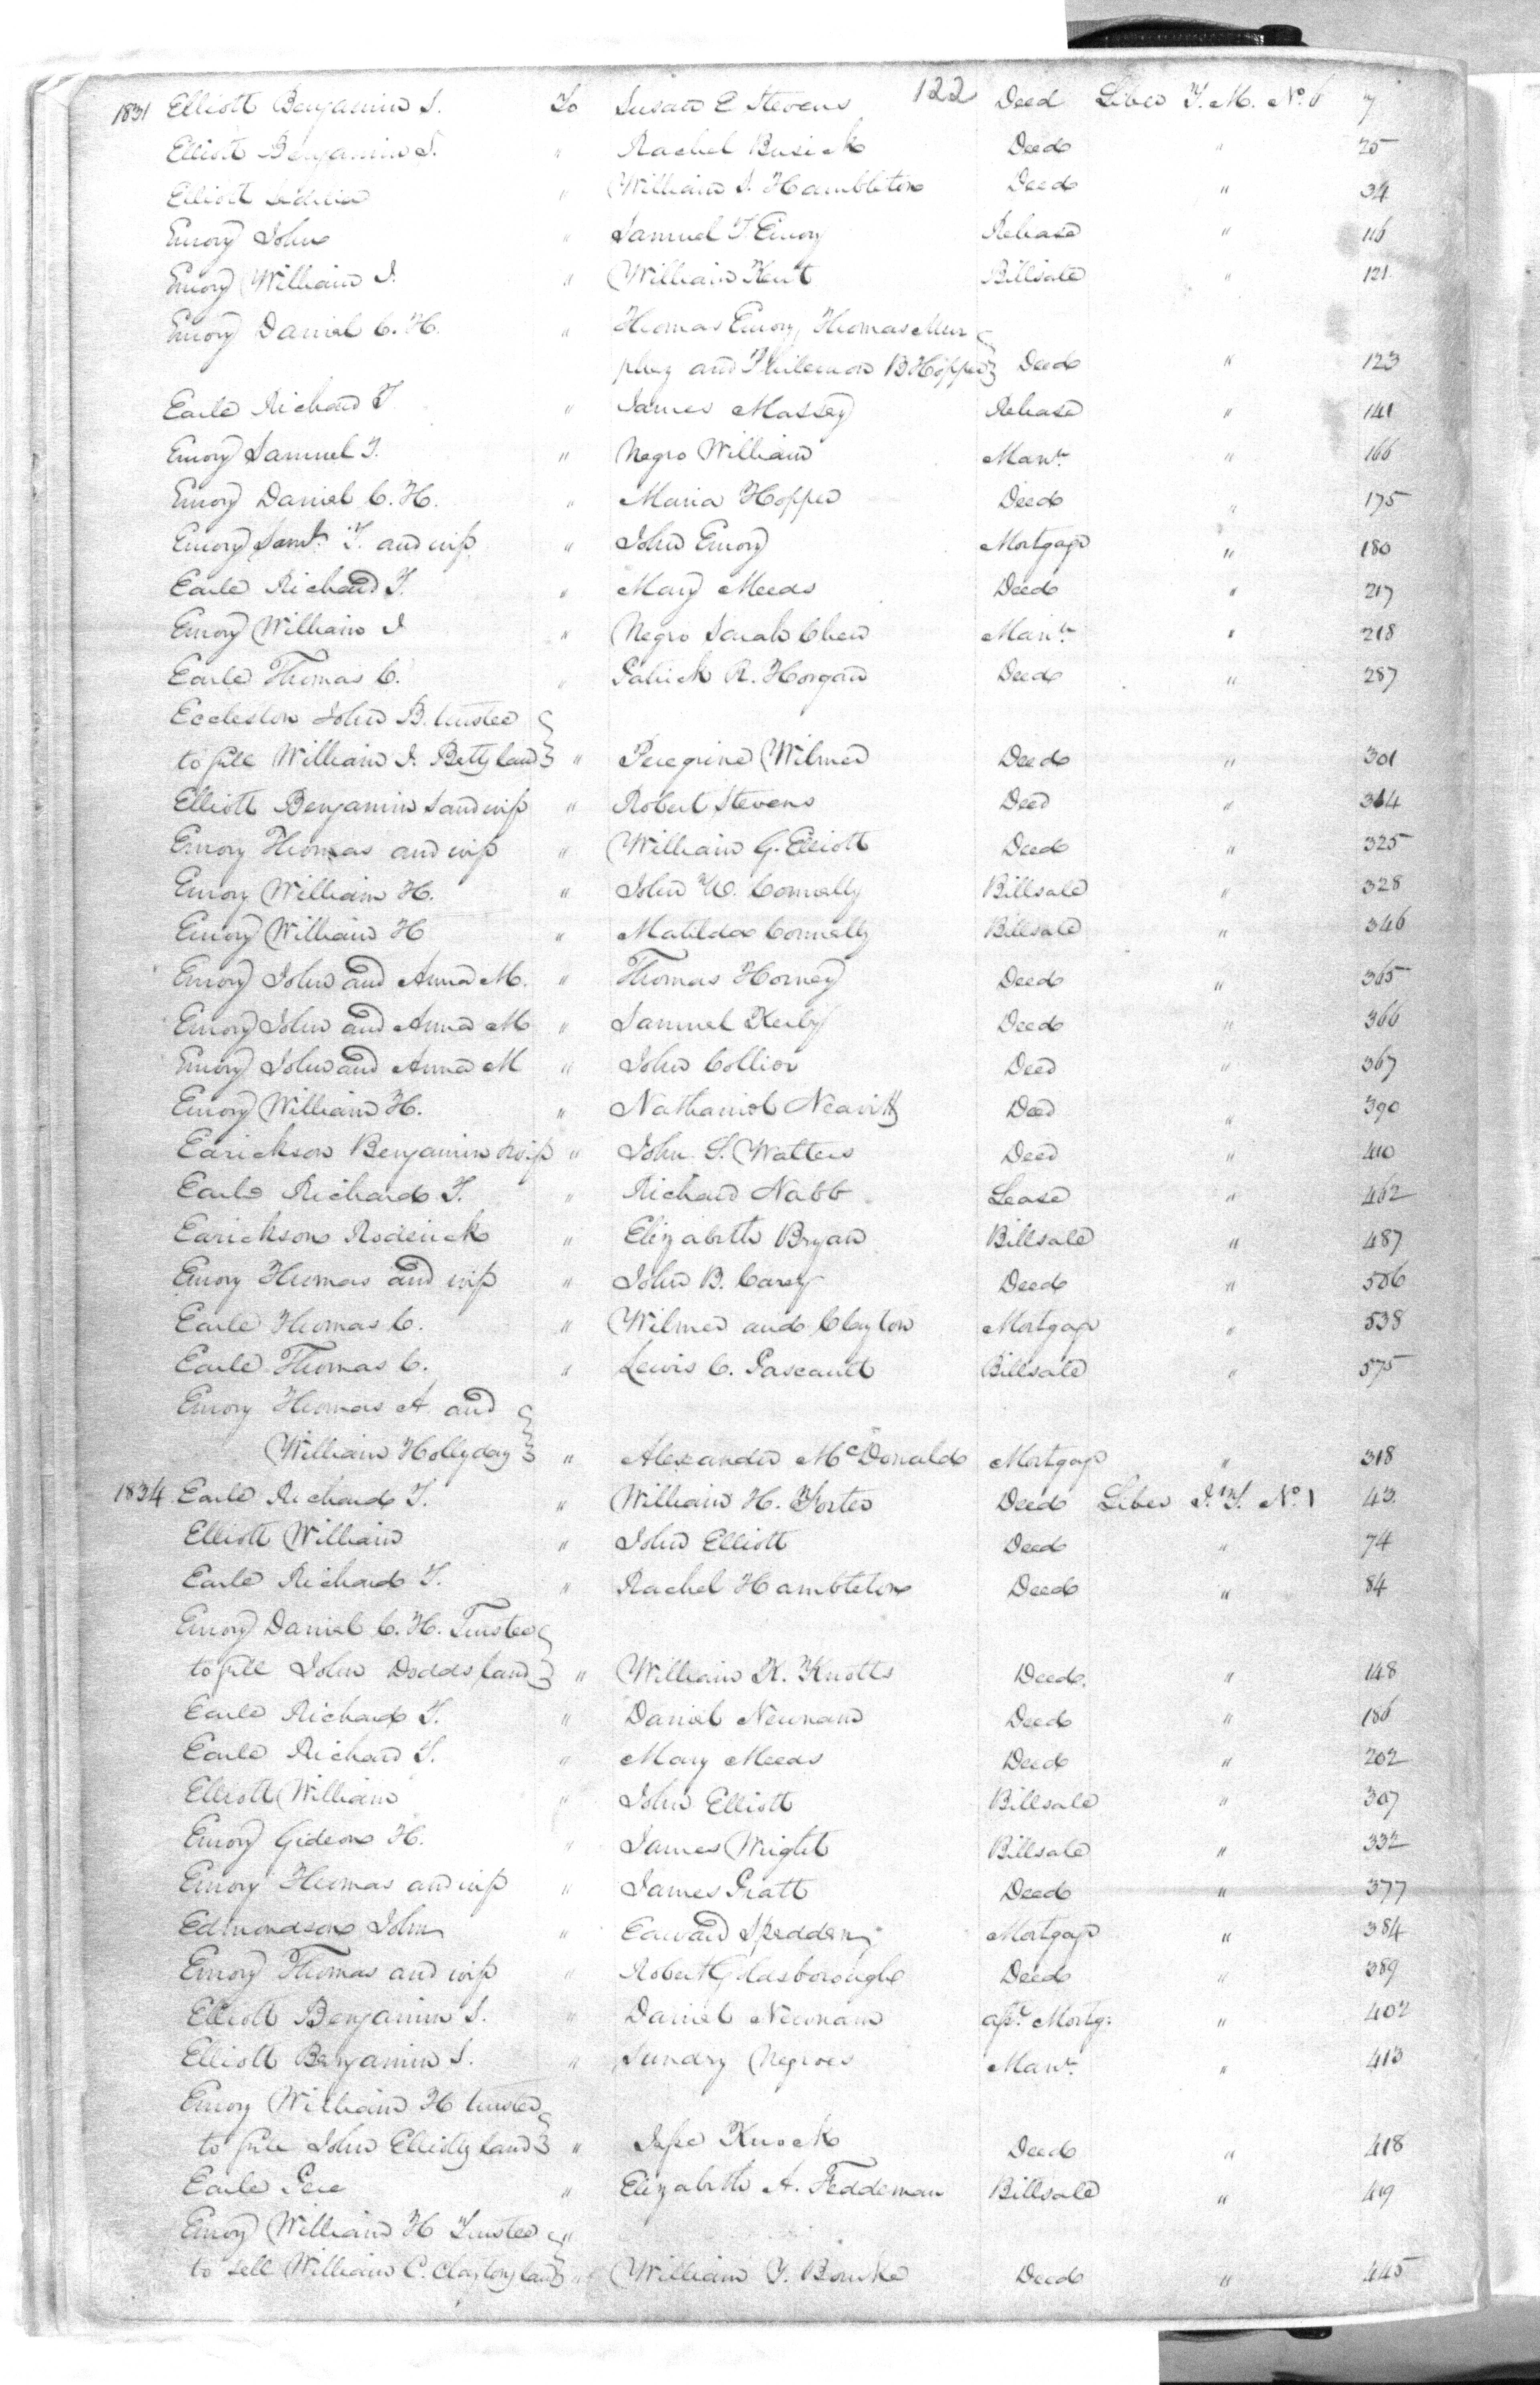 122
1831 Elliott Benjamin S. To Susan E Stevens Deed Liber T. M. No. 7
Elliott Benjamin S. " Rachel Busick Deed " 25
Elliott " William S. Hambleton Deed " 34
Emory John " Samuel T. Emory Release " 116
Emory William J. " William Kent Billsale " 121
Emory Daniel C. H. " Thomas Emory, Thomas Mur
phey and Philemon B Hopper Deed " 123
Earle Richard T " James Massey Release " 141
Emory Samuel T. " Negro William Manr. " 166
Emory Daniel C. H. " Maria Hopper Deed " 175
Emory Saml. T. and wife " John Emory Mortgage " 180
Earle Richard T. " Mary Meeds Deed " 217
Emory William J " Negro Sarah Chew Manr. " 218
Earle Thomas C. " Patrick R. Horgan Deed " 287
Eccleston John B. trustee
to sell William J. Bettys land " Peregrine Wilmer Deed " 301
Elliott Benjamin S and wife " Robert Stevens Deed " 314
Emory Thomas and wife " William G. Elliott Deed " 325
Emory William H. " John W. Connelly Billsale " 328
Emory William H " Matilda Connelly Billsale " 346
Emory John and Anna M. " Thomas Horney Deed " 365
Emory John and Anna M " Samuel Kerby Deed " 366
Emory John and Anna M " John Collier Deed " 367
Emory William H. " Nathaniel Neavitt Deed " 390
Earickson Benjamin & wife " John S. Watters Deed " 410
Earle Richard T. " Richard Nabb Lease " 462
Earickson Roderick " Elizabeth Bryan Billsale " 487
Emory Thomas and wife " John B. Carey Deed " 506
Earle Thomas C. " Wilmer and Clayton Mortgage " 538
Earle Thomas C. " Lewis C. Pascault Billsale " 575
Emory Thomas A. and
William Hollyday " Alexander McDonald Mortgage " 318
1834 Earle Richard T. " William H. Porter Deed Liber J. T. No. 1 43
Elliott William " John Elliott Deed " 74
Earle Richard T. " Rachel Hambleton Deed " 84
Emory Daniel C. H. Trustee
to sell John Dodds land " William K. Knotts Deed. " 148
Earle Richard T. " Daniel Newnam Deed " 186
Earle Richard T. " Mary Meeds Deed " 202
Elliott William " John Elliott Billsale " 307
Emory Gideon H. " James Wright Billsale " 332
Emory Thomas and wife " James Pratt Deed " 377
Edmondson John " Edward Spedden Mortgage " 384
Emory Thomas and wife " Robert Goldsborough Deed " 389
Elliott Benjamin S. " Daniel Newnam asst. Mortg: " 402
Elliott Benjamin S. " Sundry Negroes Manr. " 413
Emory William H trustee
to sell John Elliotts land " Jesse Knock Deed " 418
Earle Pere " Elizabeth A. Feddeman Billsale " 419
Emory William H Trustee "
to sell William C. Claytons land " William Y. Bourke Deed " 445